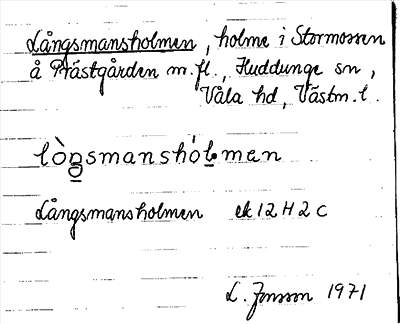 Långsmansholmen, holme i Stormossen
å Prästgården m.fl., Huddunge sn,
Våla hd, Västm. l.
lòn̲gsmanshólmen
Långsmansholmen ek 12 H 2 c
L. Jonsson 1971